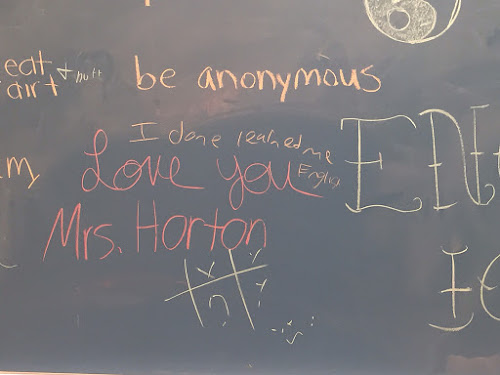 eat + butt
be anonymous
I done learned me
English
Love you
EN
Mrs. Horton